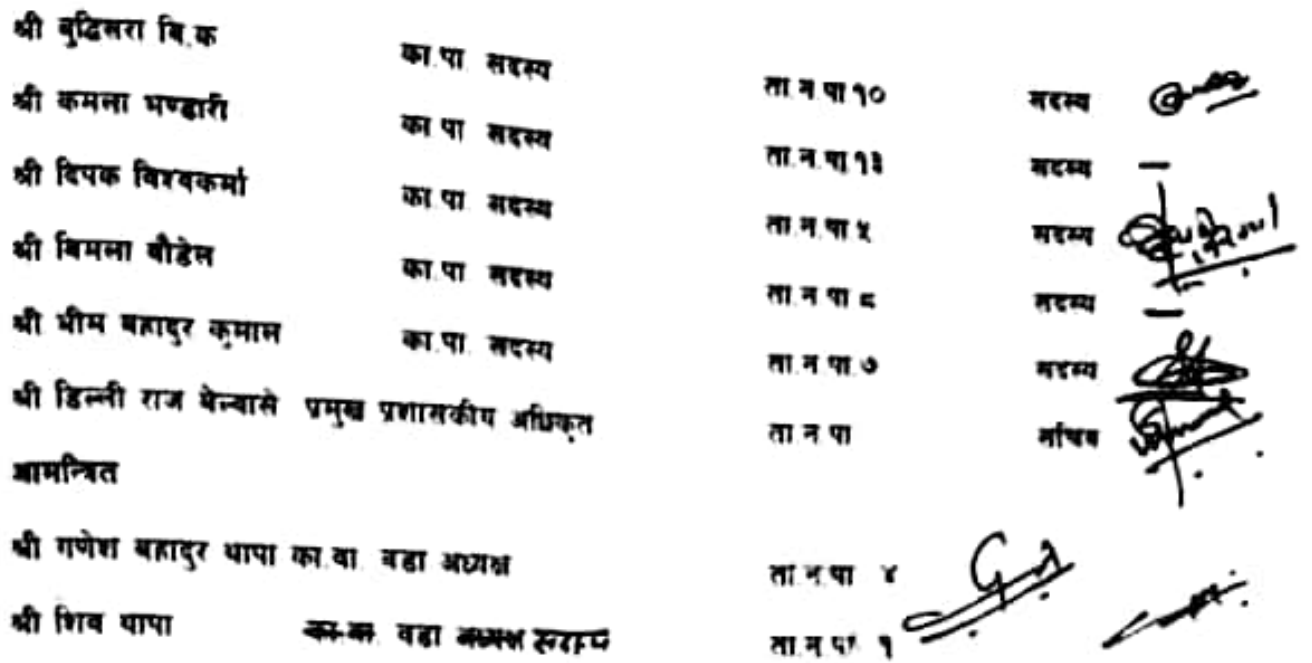 श्री बुद्धिसरा बि.क का.पा. सदस्य ता.न.पा १० सदस्य
श्री कमला भण्डारी का.पा. सदस्य ता.न.पा १३ सदस्य –
श्री दिपक विश्वकर्मा का.पा. सदस्य ता.न.पा ५ सदस्य
श्री बिमला पौडेल का.पा. सदस्य ता.न.पा ८ सदस्य –
श्री भीम बहादुर कुमाल का.पा. सदस्य ता.न.पा ७ सदस्य
श्री डिल्ली राज बेल्वासे प्रमुख प्रशासकीय अधिकृत ता.न.पा सचिव
आमन्त्रित
श्री गणेश बहादुर थापा का.वा. वडा अध्यक्ष ता.न.पा ४
श्री शिव थापा का.वा. वडा अध्यक्ष ता.न.पा १